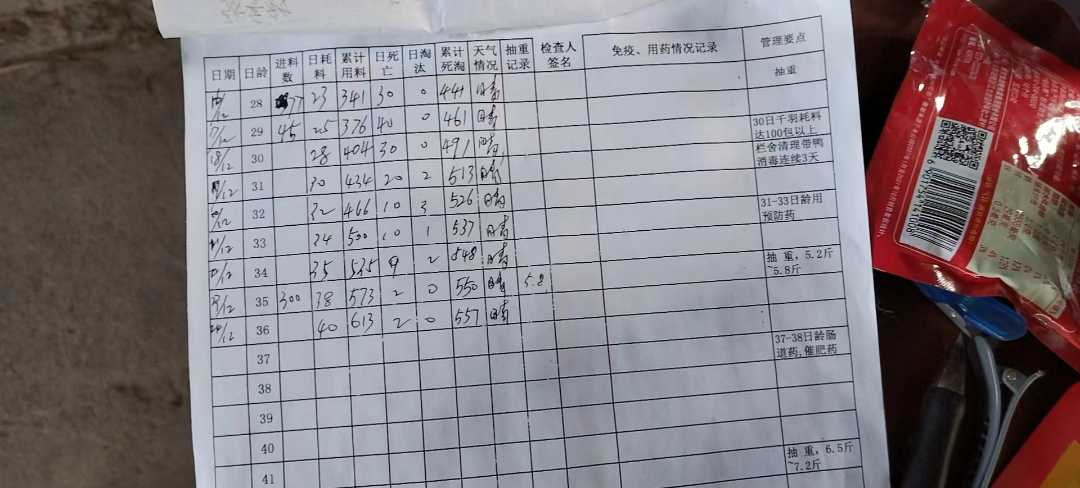 日期 日龄 进料数 日耗料 累计用料 日死亡 日淘汰 累计死淘 天气情况 抽重记录 检查人签名 免疫、用药情况记录 管理要点
抽重
28 23 341 30 0 441 晴
17/12 29 45 25 376 40 0 461 晴
30日千羽耗料达100包以上
18/12 30 28 404 30 0 491 晴
栏舍清理带鸭消毒连续3天
31 30 434 20 2 513 晴
32 32 466 10 3 526 晴
31-33日龄用预防药
33 34 500 10 1 537 晴
34 35 535 9 2 548 晴
抽重,5.2斤~5.8斤
35 300 38 573 2 0 550 晴 5.8
36 40 613 2 0 557 晴
37
37-38日龄肠道药,催肥药
38
39
40
抽重,6.5斤~7.2斤
41